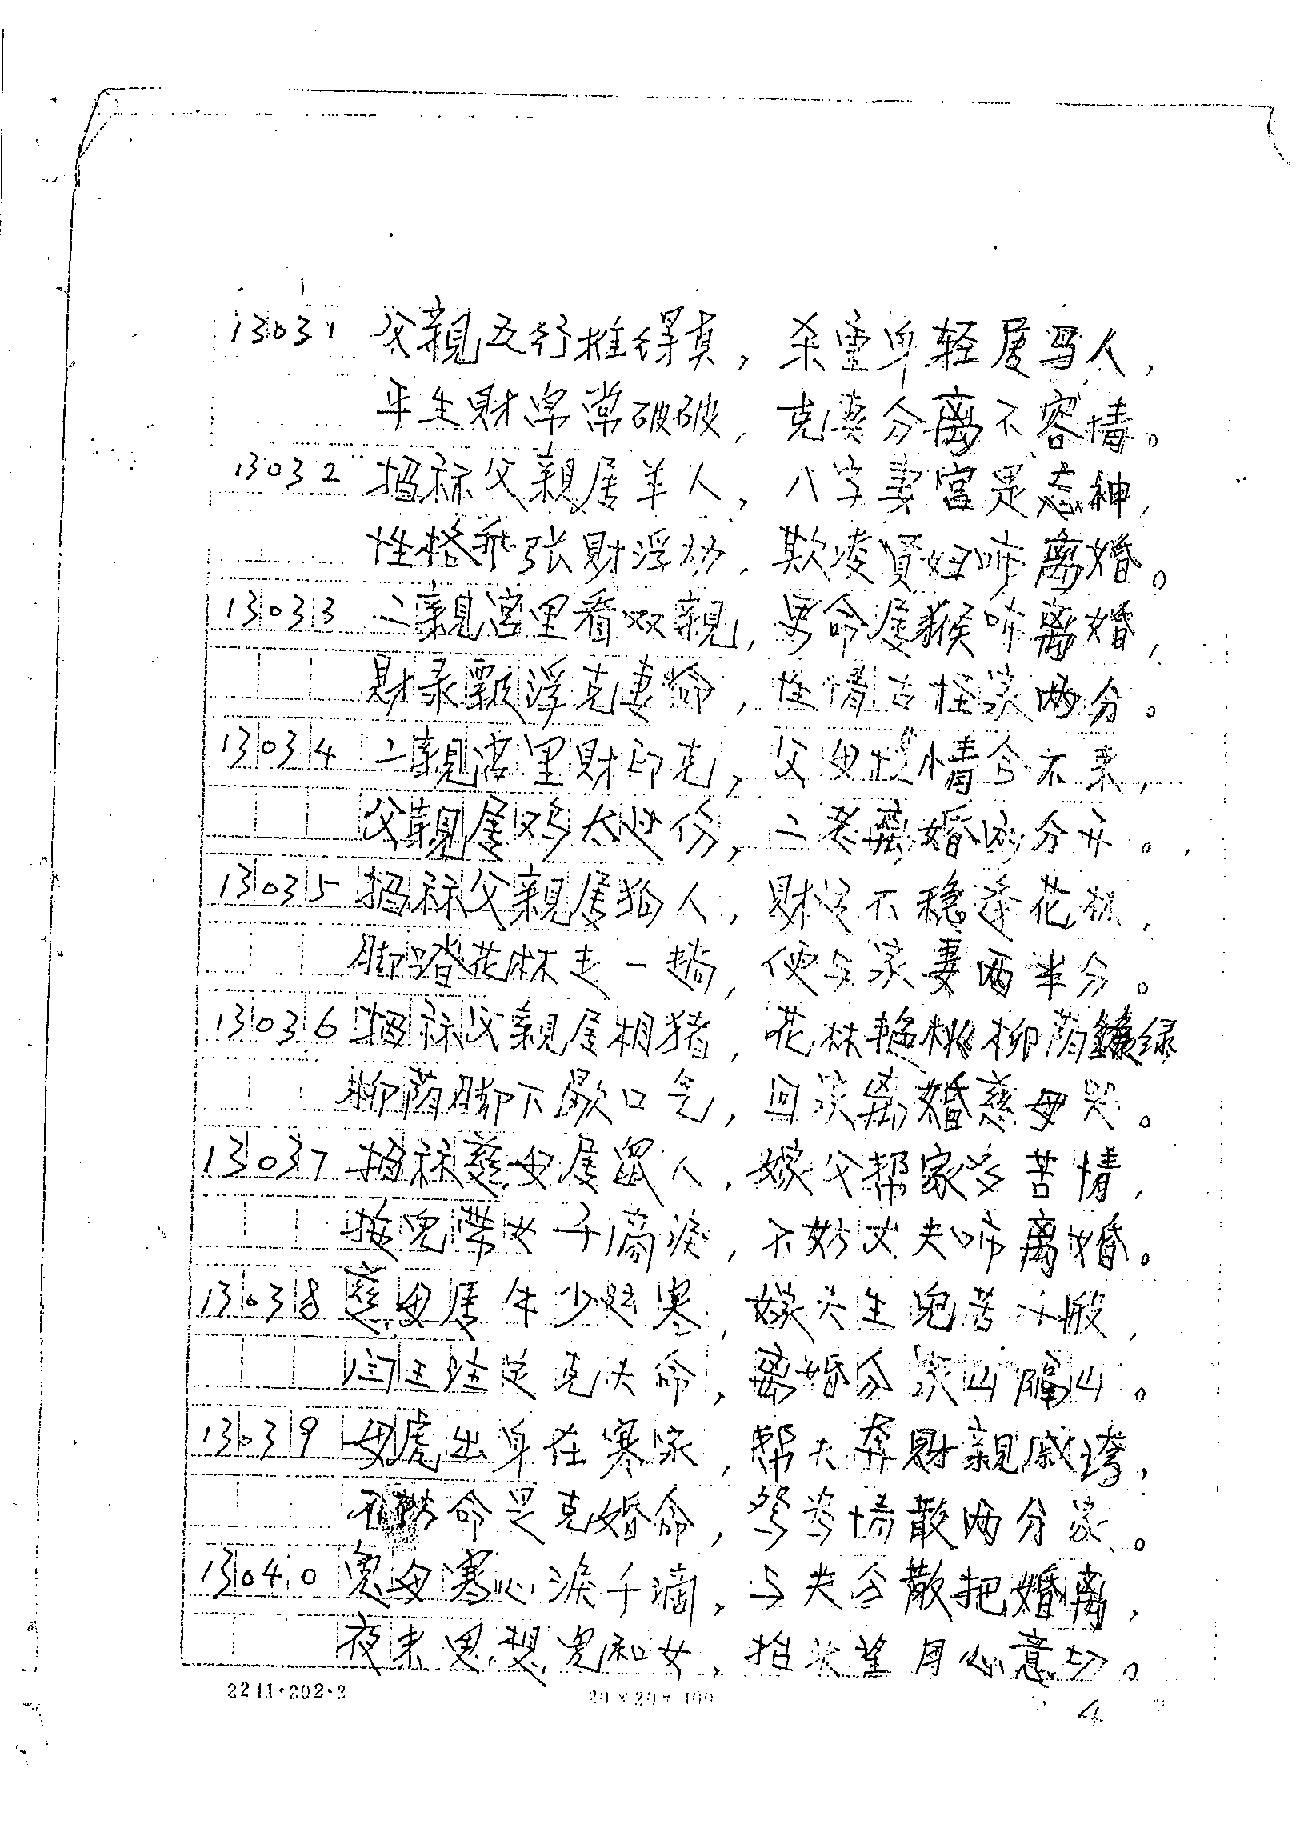 13031 父親五行推得真，杀重身轻属马人，
平生財帛常破破，克妻分离不容情。
13032 椿萱父親属羊人，八字妻宫是忌神，
性格乖张財浮动，欺凌賢妇咋离婚。
13033 二親宫里看双親，男命属猴咋离婚，
財录飘浮克妻命，性情古怪家两分。
13034 二親宫里財印克，父母 情今不来，
父親属鸡太 份，二老离婚两分开。
13035 父親属狗人，財 不稳逢花 ，
脚踏花林走一趟，便与家妻两半分。
13036 父親属相猪，花林艳桃柳荫绿
柳荫脚下歇口气，回家离婚慈母哭。
13037 慈母属鼠人，嫁父帮家多苦情，
拖兒带女千滴淚，不妙丈夫咋离婚。
13038 慈母属牛少 寒，嫁夫生兒苦千般，
闫王 是克夫命，离婚分家山隔山。
13039 母虎出身在寒家，帮夫奔財親戚誇，
命是克婚命，鸳鸯情散两分家。
13040 兔母寒心淚千滴，与夫分散把婚离，
夜来思想兒和女，抬头望月心意切。
2241·202·2 20×20=400
4